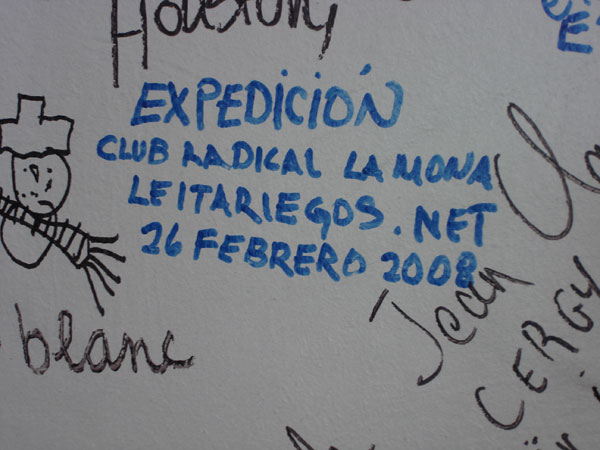 Houston
EXPEDICIÓN
CLUB RADICAL LA MONA
LEITARIEGOS.NET
26 FEBRERO 2008
blanc
Jean
CERGY